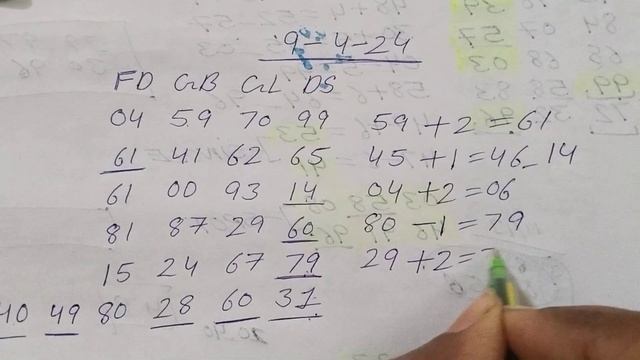 9-4-24
FD GB GL DS
04 59 70 99 59+2=61
61 41 62 65 45+1=46-14
61 00 93 14 04+2=06
81 87 29 60 80-1=79
15 24 67 79 29+2=
40 49 80 28 60 31